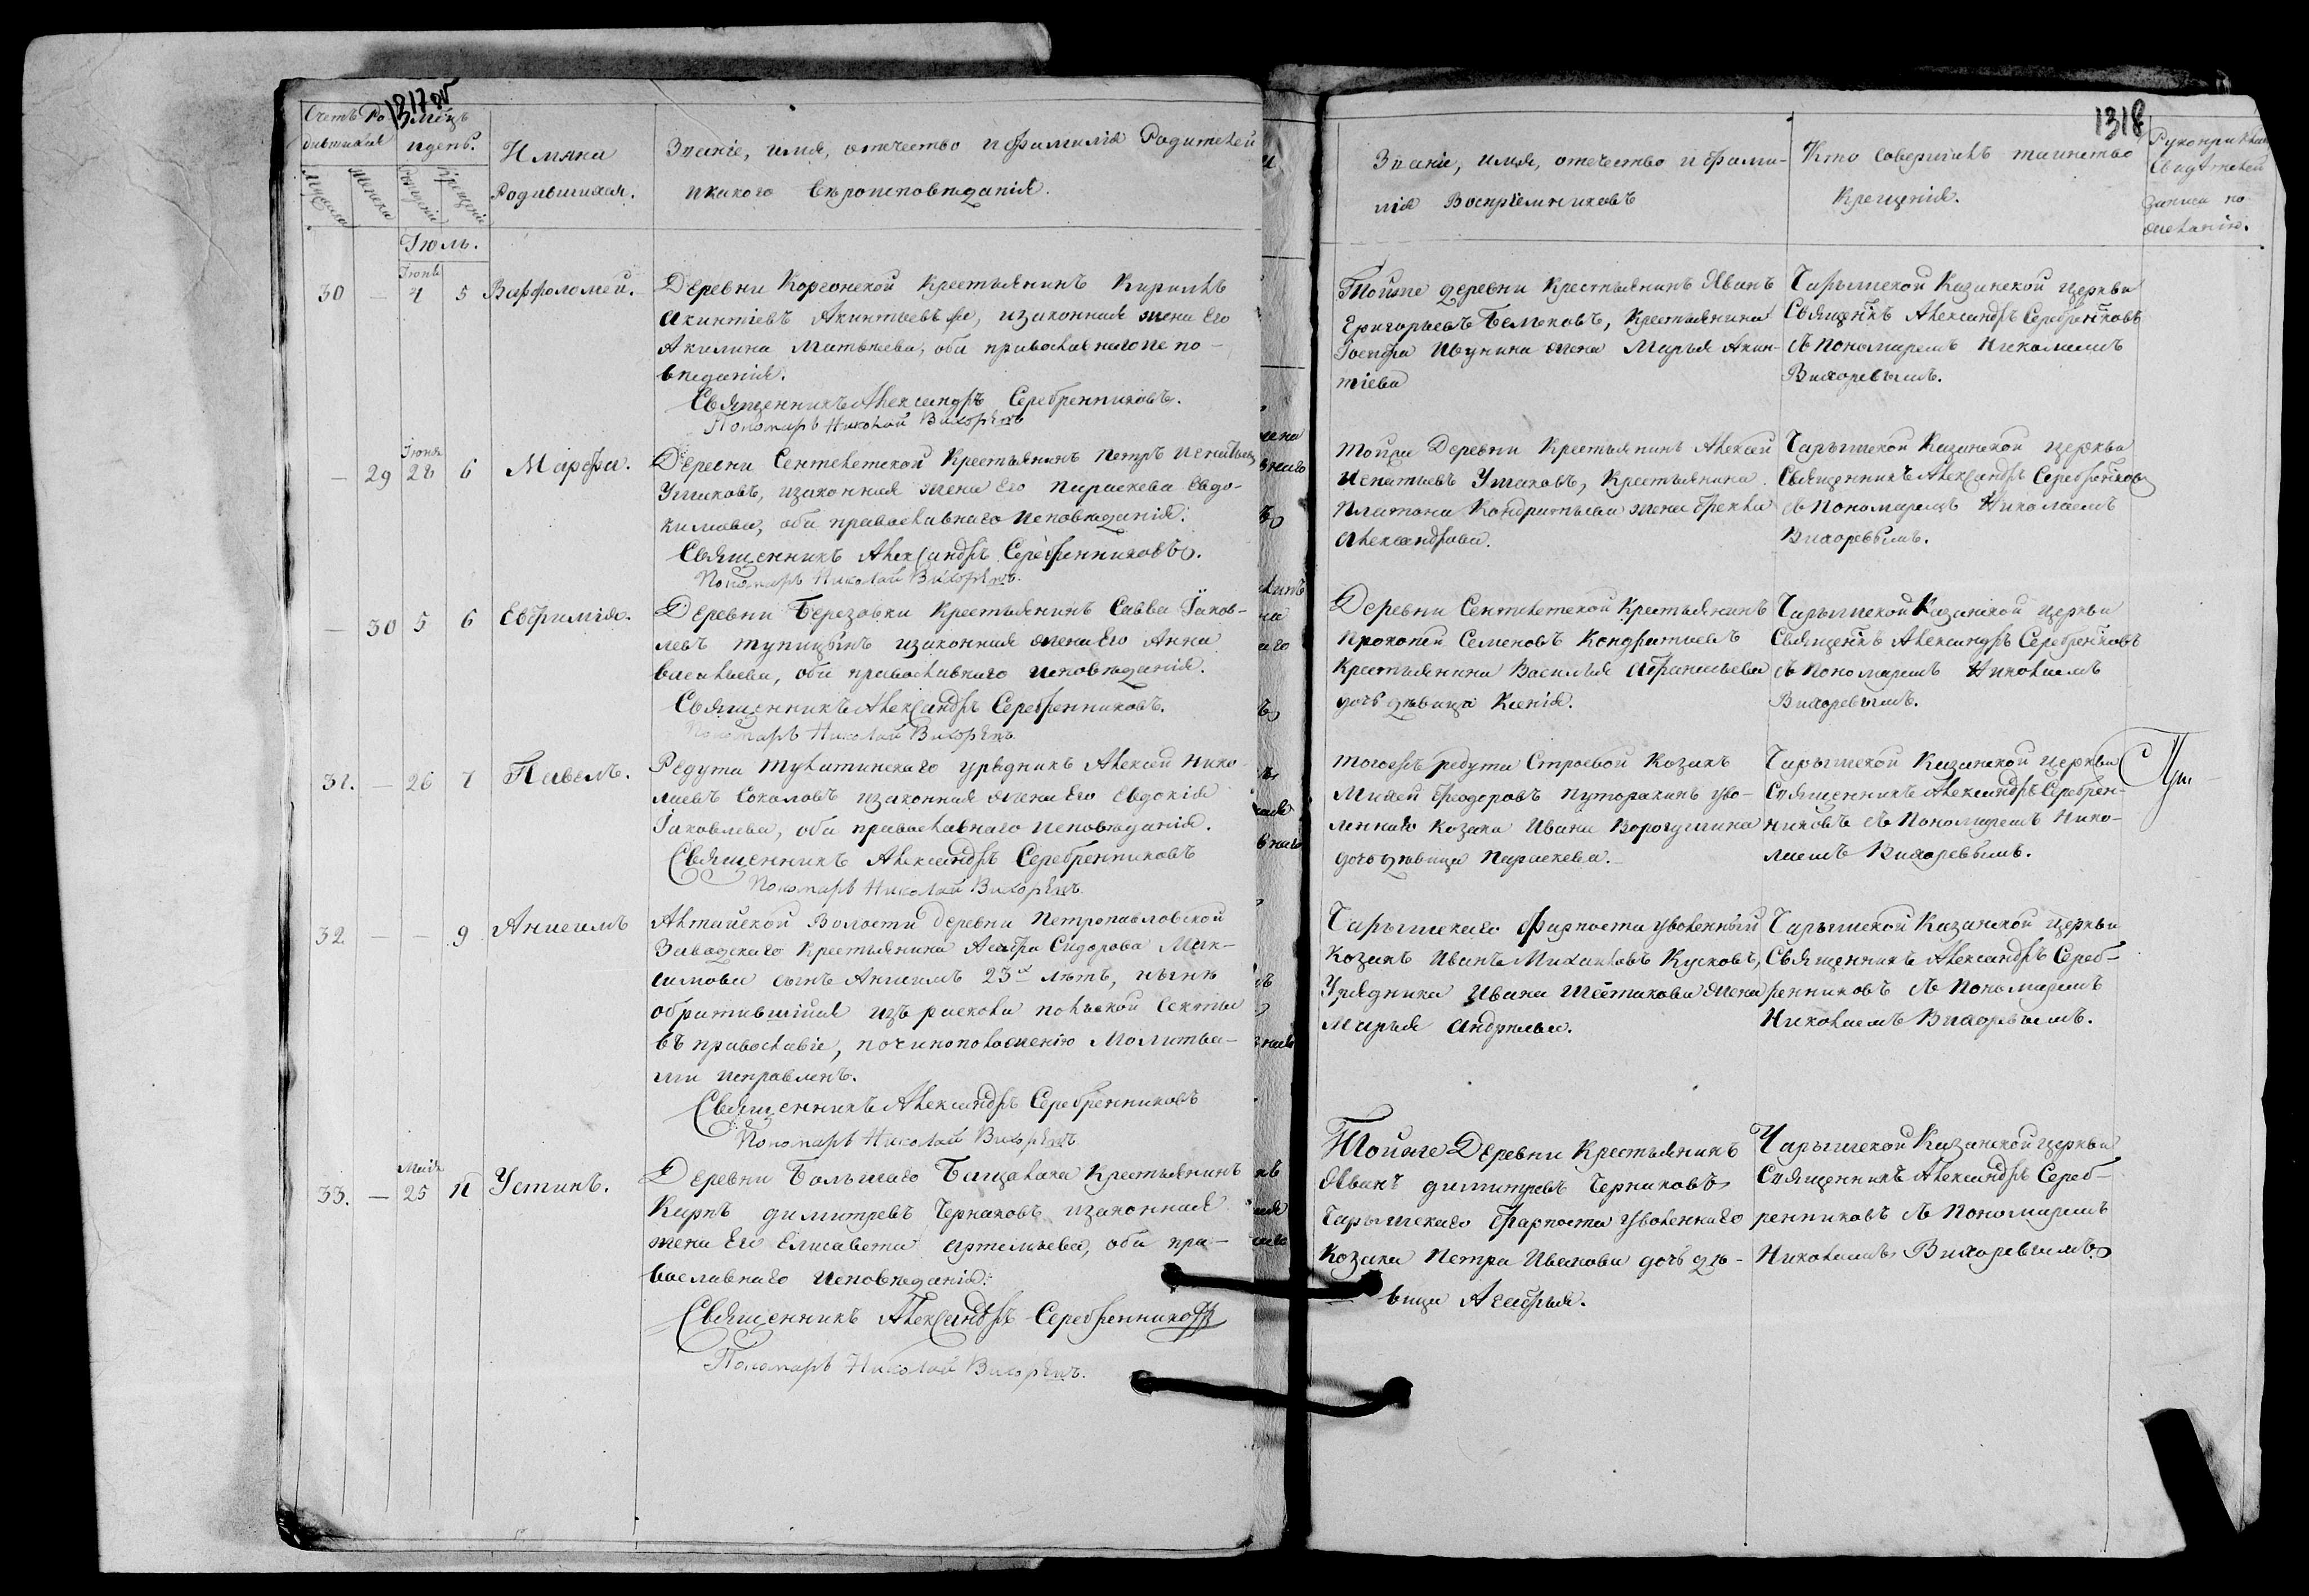 1317 об
Счетъ Ро-
дившихся
Мѣсяцъ
и день.
Мужеска
Женска
Рожденія
Крещенія
Имяна
Родившихся.
Званіе, имя, отчество и фамилія Родителей
и какого Вѣроисповѣданія.
Іюль.
Іюнь
30 — 4 5 Варфоломей.
Деревни Коргонской Крестьянинъ Кирилъ
Акинтіевъ Акинтьевъ же, изаконная жена Его
Акилина Матвѣева, оба православнаго испо-
вѣданія.
Священникъ Александръ Серебренниковъ.
Пономарь Николай Вихоревъ
Іюня
— 29 28 6 Марфа.
Деревни Сентелетской Крестьянинъ Петръ Игнатьевъ
Ушаковъ, изаконная жена Его Параскева Евдо-
кимова, оба православнаго исповѣданія.
Священникъ Александръ Серебренниковъ.
Пономарь Николай Вихоревъ.
— 30 5 6 Евфимія.
Деревни Березовки Крестьянинъ Савва Іаков-
левъ Тупицынъ изаконная жена Его Анна
Васильева, оба православнаго исповѣданія.
Священникъ Александръ Серебренниковъ.
Пономарь Николай Вихоревъ
31. — 26 7 Павелъ.
Редута Тулатинскаго урядникъ Алексей Нико-
лаевъ Соколовъ изаконная жена Его Евдокія
Іаковлева, оба православнаго исповѣданія.
Священникъ Александръ Серебренниковъ
Пономарь Николай Вихоревъ
32 — — 9 Анисимъ
Алтайской Волости деревни Петропавловской
Заводскаго Крестьянина Асафа Сидорова Мак-
симова сынъ Анисимъ 23х лѣтъ, нынѣ
обратившійся изъ раскола польской Секты
въ православіе, по чиноположенію Молитва-
ми исправленъ.
Священникъ Александръ Серебренниковъ
Пономарь Николай Вихоревъ
Маія
33. — 25 11 Устинъ.
Деревни Большаго Бащалака Крестьянинъ
Карпъ Димитревъ Черкаковъ изаконная
жена Его Елисавета Артемьева, оба пра-
вославнаго исповѣданія.
Священникъ Александръ Серебренниковъ
Пономарь Николай Вихоревъ.
1318
Званіе, имя, отечество и фами-
лія Воспріемниковъ
Кто совершилъ таинство
Крещенія.
Рукоприкла
Свидѣтелей
записи по
желанію.
Тойже деревни Крестьянинъ Иванъ
Григорьевъ Бельковъ, Крестьянина
Іосифа Ивунина жена Марья Акин-
тіева
Чарышской Казанской церкви
Священникъ Александръ Серебренниковъ
съ Пономаремъ Николаемъ
Вихоревымъ.
Тойже Деревни Крестьянинъ Алексей
Игнатьевъ Ушаковъ, Крестьянина
Платона Кондратьева жена Фекла
Александрова.
Чарышской Казанской церкви
Священникъ Александръ Серебренниковъ
съ Пономаремъ Николаемъ
Вихоревымъ.
Деревни Сентелетской Крестьянинъ
Прокопей Семеновъ Кондратьевъ
Крестьянина Василья Афанасьева
дочь дѣвица Ксенія.
Чарышской Казанской церкви
Священникъ Александръ Серебренниковъ
съ Пономаремъ Николаемъ
Вихоревымъ.
Тогожъ редута Строевой Козакъ
Михей Феодоровъ Путоракинъ уво-
леннаго козака Ивана Ворогушина
дочь дѣвица Параскева.
Чарышской Казанской церкви
Священникъ Александръ Серебрен-
никовъ съ Пономаремъ Нико-
лаемъ Вихоревымъ.
Чарышскаго Фарпоста уволенный
Козакъ Иванъ Михаиловъ Кусковъ,
Урядника Ивана Шестакова жена
Марья Андреева.
Чарышской Казанской церкви
Священникъ Александръ Сереб-
ренниковъ съ Пономаремъ
Николаемъ Вихоревымъ.
Тойже Деревни Крестьянинъ
Иванъ Димитревъ Черкаковъ
Чарышскаго Фарпоста уволеннаго
Козака Петра Иванова дочь дѣ-
вица Агафья.
Чарышской Казанской церкви
Священникъ Александръ Сереб-
ренниковъ съ Пономаремъ
Николаемъ Вихоревымъ